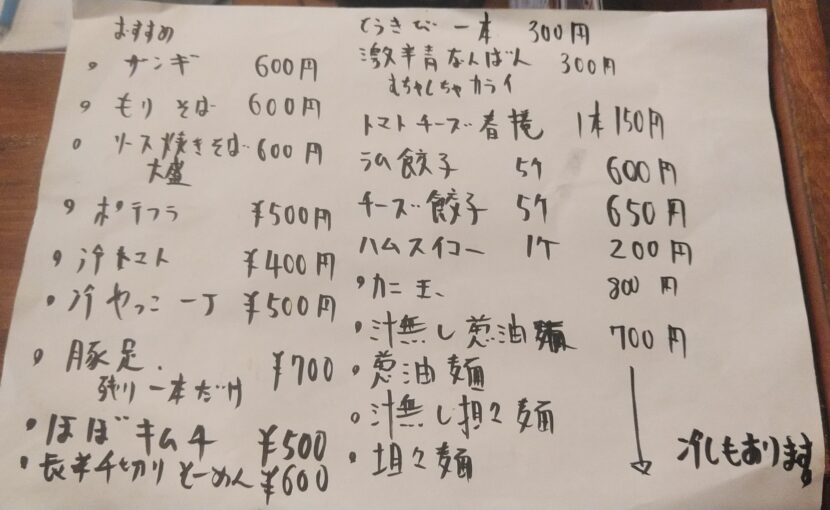 おすすめ
・ザンギ 600円
・もりそば 600円
・ソース焼きそば 600円
大盛
・ポテフラ ¥500円
・冷トマト ¥400円
・冷やっこ一丁 ¥500円
・豚足. ¥700
残り一本だけ
・ほぼキムチ ¥500
・長芋千切りそーめん ¥600
とうきび一本 300円
激辛青なんばん 300円
むちゃくちゃカライ
トマトチーズ春捲 1本150円
ラム餃子 5ケ 600円
チーズ餃子 5ケ 650円
ハムスイコー 1ケ 200円
・カニ玉、 800円
・汁無し葱油麺 700円
・葱油麺
・汁無し担々麺
・坦々麺
冷しもあります